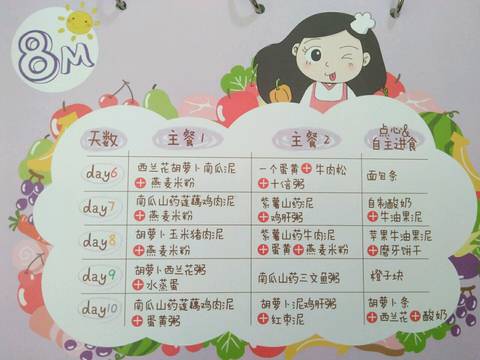 8M
天数 主餐1 主餐2 点心&
自主进食
day6 西兰花胡萝卜南瓜泥 一个蛋黄+牛肉松 面包条
+燕麦米粉 +十倍粥
day7 南瓜山药莲藕鸡肉泥 紫薯山药泥 自制酸奶
+燕麦米粉 +鸡肝粥 +牛油果泥
day8 胡萝卜玉米猪肉泥 紫薯山药牛肉泥 苹果牛油果泥
+燕麦米粉 +蛋黄+燕麦米粉 +磨牙饼干
day9 胡萝卜西兰花粥 南瓜山药三文鱼粥 橙子块
+水蒸蛋
day10 南瓜山药莲藕鸡肉泥 胡萝卜泥鸡肝粥 胡萝卜条
+蛋黄粥 +红枣泥 +西兰花+酸奶